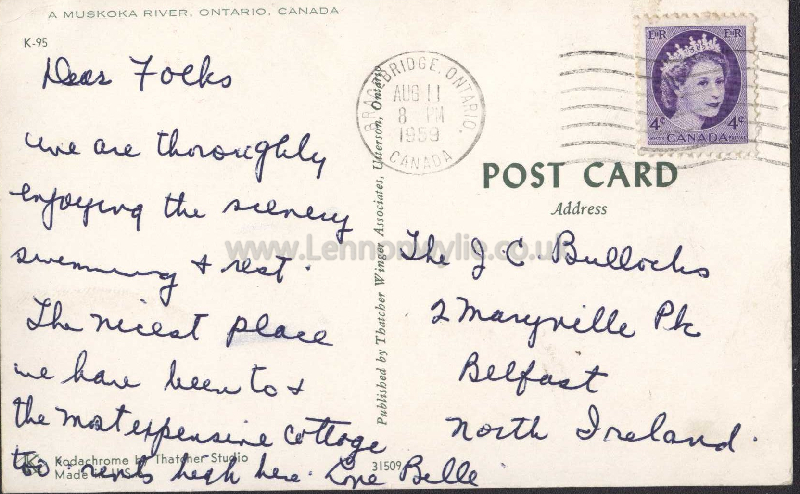 A MUSKOKA RIVER, ONTARIO, CANADA
K-95
Dear Folks
we are thoroughly
enjoying the scenery
swimming & rest.
The nicest place
we have been to &
the most expensive cottage
too. rents high here. Love Belle
Kodachrome by Thatcher Studio
Made in U.S.A.
31509
Published by Thatcher Winger Associates, Utterson, Ontario
BRACEBRIDGE, ONTARIO.
AUG 11
8 PM
1959
CANADA
E II R E II R
4¢ CANADA 4¢
POST CARD
Address
The J C Bullocks
2 Maryville Pk
Belfast
North Ireland.
www.Lennonwylie.co.uk